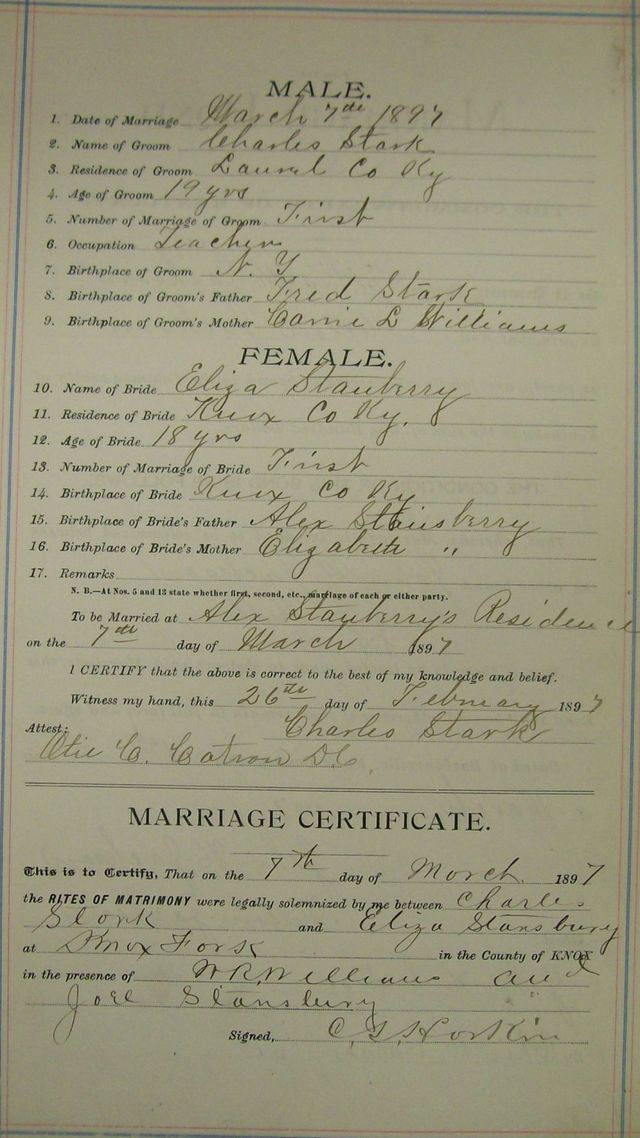 MALE.
1. Date of Marriage March 7th 1897
2. Name of Groom Charles Stark
3. Residence of Groom Laurel Co Ky
4. Age of Groom 19 yrs
5. Number of Marriage of Groom First
6. Occupation Teacher
7. Birthplace of Groom N. Y
8. Birthplace of Groom's Father Fred Stark
9. Birthplace of Groom's Mother Carrie L Williams
FEMALE.
10. Name of Bride Eliza Stanberry
11. Residence of Bride Knox Co Ky.
12. Age of Bride 18 yrs
13. Number of Marriage of Bride First
14. Birthplace of Bride Knox Co Ky
15. Birthplace of Bride's Father Alex Stansberry
16. Birthplace of Bride's Mother Elizabeth "
17. Remarks
N. B.—At Nos. 5 and 13 state whether first, second, etc., marriage of each or either party.
To be Married at Alex Stanberry's Residence
on the 7th day of March 1897
I CERTIFY that the above is correct to the best of my knowledge and belief.
Witness my hand, this 26th day of February 1897
Charles Stark
Attest:
Otie C. Catron D.C.
MARRIAGE CERTIFICATE.
This is to Certify, That on the 7th day of March 1897
the RITES OF MATRIMONY were legally solemnized by me between Charles
Stork and Eliza Stansbury
at Knox Fork in the County of KNOX
in the presence of W.R. Williams and
Joel Stansbury
Signed, C. G. Horkin